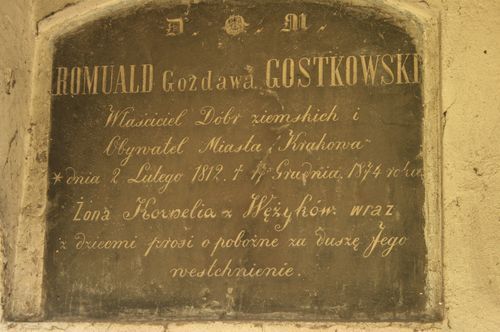 D. O. M.
ROMUALD Gozdawa GOSTKOWSKI
Właściciel Dóbr ziemskich i
Obywatel Miasta Krakowa
* dnia 2 Lutego 1812. † Grudnia 1874 roku
Żona Kornelia z Wężyków wraz
z dziećmi prosi o pobożne za duszę Jego
westchnienie.